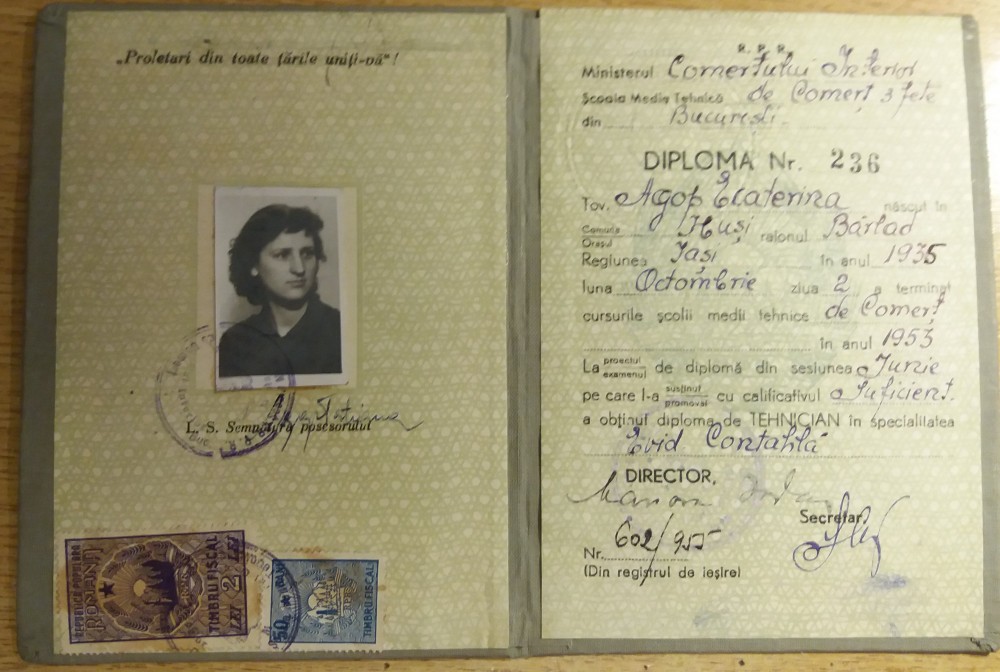 „Proletari din toate țările uniți-vă"!
L. S. Semnătura posesorului
REPUBLICA POPULARA
ROMÂNĂ
TIMBRU FISCAL
2 LEI
LEI
50
TIMBRU FISCAL
R. P. R.
Ministerul Comerțului Interior
Școala Medie Tehnică de Comerț 3 fete
din București.
DIPLOMA Nr. 236
Tov. Agop Ecaterina născut în
Comuna
Orașul Huși raionul Bârlad
Regiunea Iași în anul 1935
luna Octombrie ziua 2 a terminat
cursurile școlii medii tehnice de Comerț
în anul 1953
La proiectul
examenul de diplomă din sesiunea Iunie
pe care l-a susținut
promovat cu calificativul Suficient.
a obținut diploma de TEHNICIAN în specialitatea
Evid Contabilă
DIRECTOR,
Secretar,
Nr. 602/955
(Din registrul de ieșire)